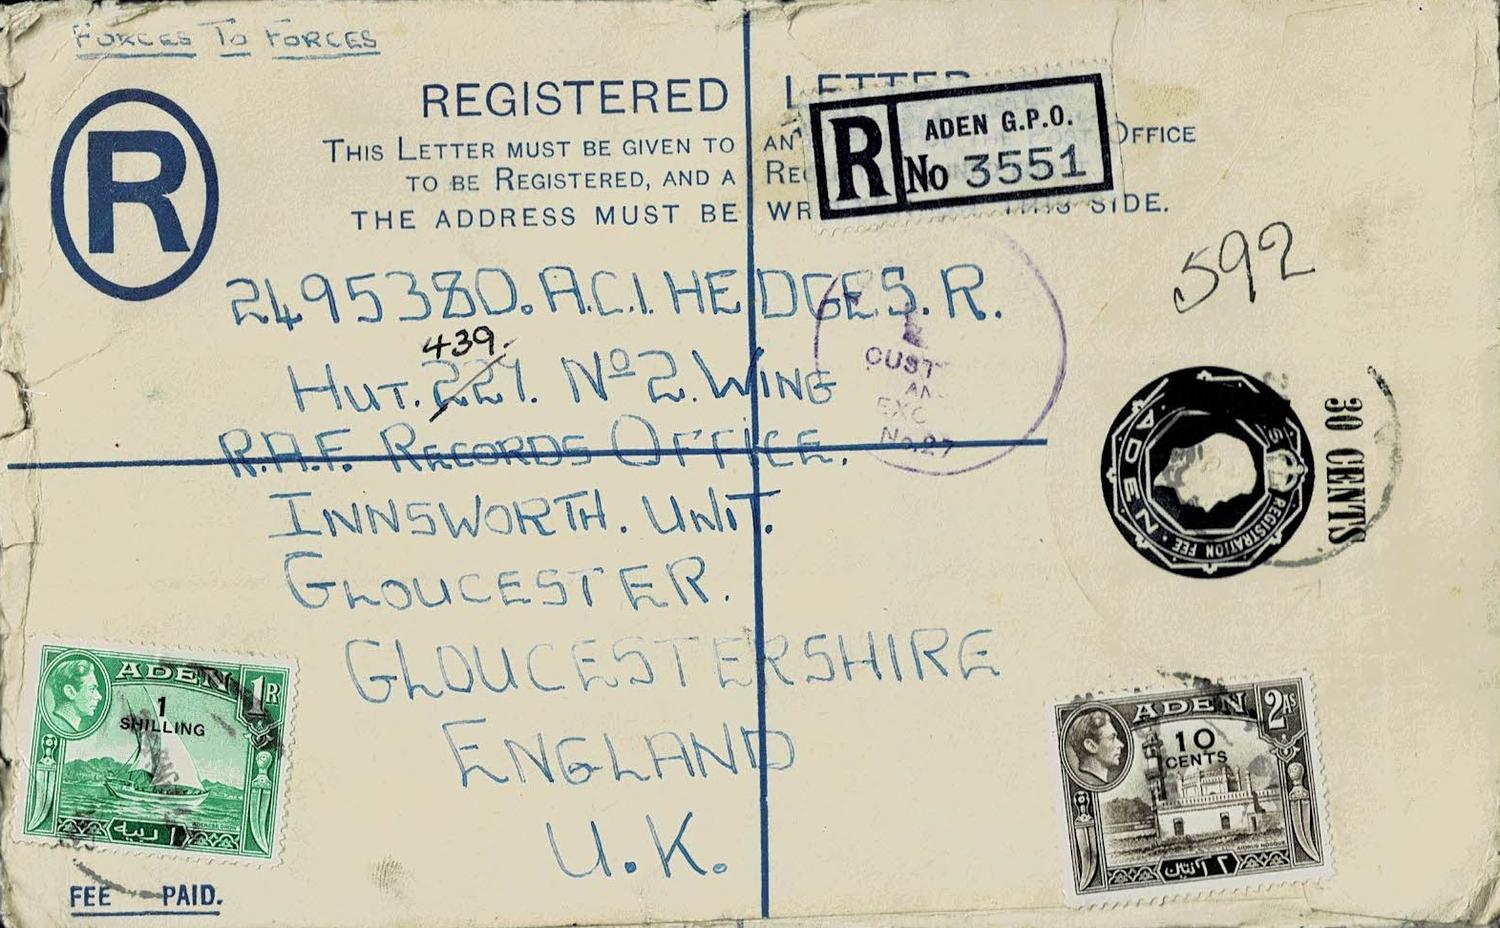 FORCES TO FORCES
REGISTERED LETTER
THIS LETTER MUST BE GIVEN TO AN OFFICE
TO BE REGISTERED, AND A
THE ADDRESS MUST BE THIS SIDE.
R
R
ADEN G.P.O.
No 3551
592
2495380. A.C.1. HEDGES. R.
439.
HUT. 221. No 2. WING
R.A.F. RECORDS OFFICE.
INNSWORTH. UNIT.
GLOUCESTER.
GLOUCESTERSHIRE
ENGLAND
U.K.
No. 27
ADEN
REGISTRATION FEE
30 CENTS
ADEN 1R
1
SHILLING
ADEN 2AS
10
CENTS
FEE PAID.